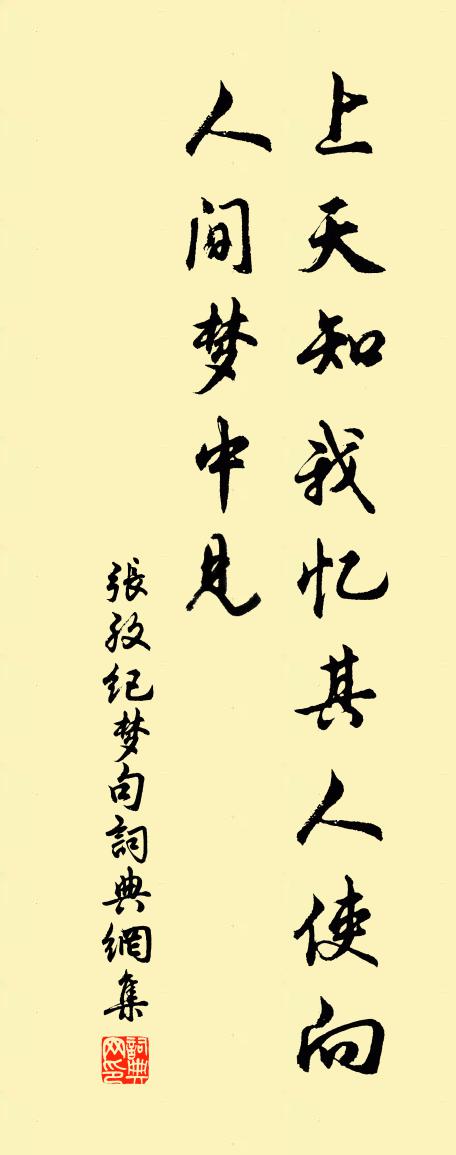 上天知我忆其人使向
人间梦中见
張孜纪梦句詞典網集
詞典
网印